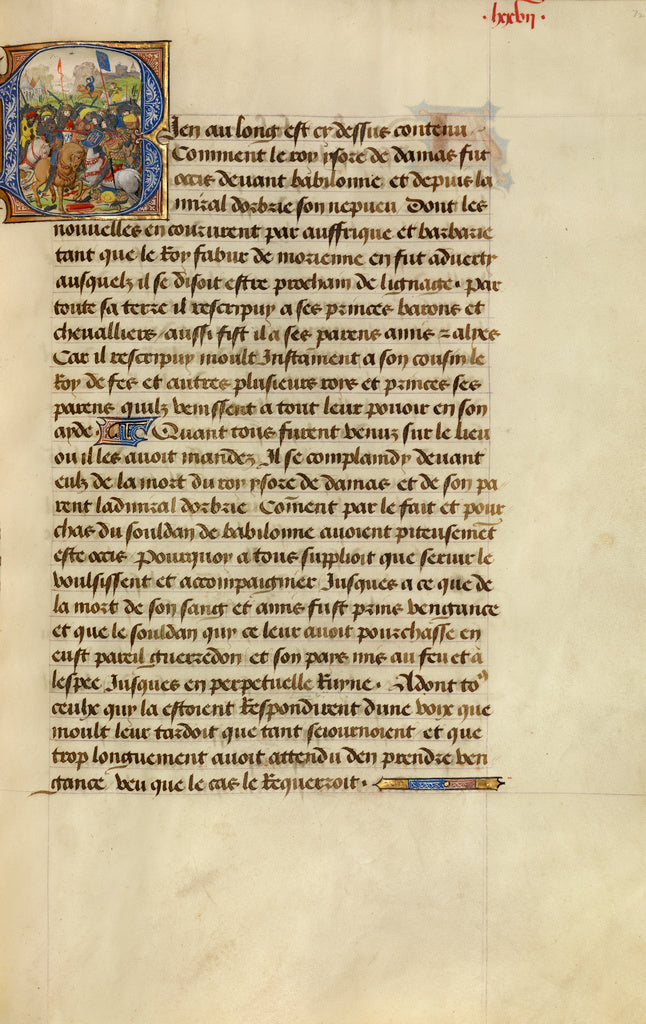 ·lxxvii·
Bien au long est cy dessus contenu
Comment le roy ysore de damas fut
occis deuant babilonne et depuis la
miral dorbrie son nepueu Dont les
nouuelles en coururent par auffrique et barbarie
tant que le Roy fabur de morienne en fut aduerty
ausquelz il se disoit estre prochain de lignage · Par
toute sa terre il rescripuy a ses princes barons et
cheualliers aussi fist il a ses parens amis z alyes
Car il rescripuy moult Instãment a son cousin le
Roy de fes et autres plusieurs roys et princes ses
parens quilz venissent a tout leur pouoir en son
ayde · Quant tous furent venuz sur le lieu
ou il les auoit mandez Il se complaindy deuant
eulz de la mort du roy ysore de damas et de son pa
rent ladmiral dorbrie Com̃ent par le fait et pour
chas du souldan de babilonne auoient piteusemẽt
este occis Pourquoy a tous supplioit que seruir le
voulsissent et accompaignier Jusques a ce que de
la mort de son sang et amis fust prins vengance
et que le souldan quy ce leur auoit pourchasse en
eust pareil guerredon et son pays mis au feu et a
lespee Jusques en perpetuelle Ruyne · Adont to9
ceulx quy la estoient Respondirent dune voix que
moult leur tardoit que tant seiournoient et que
trop longuement auoit attendu den prendre ven
gance veu que le cas le Requerroit ·